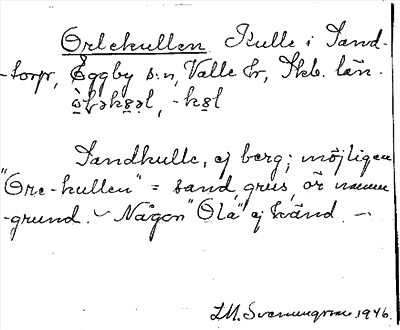 Orlekullen Kulle i Sand-
-torp, Eggby s:n, Valle hr, Skb. län.
Sandkulle, ej berg; möjligen
"Öre-kullen" = sand, grus, ör namn
-grund. Någon "Ola" ej känd. -
1946.